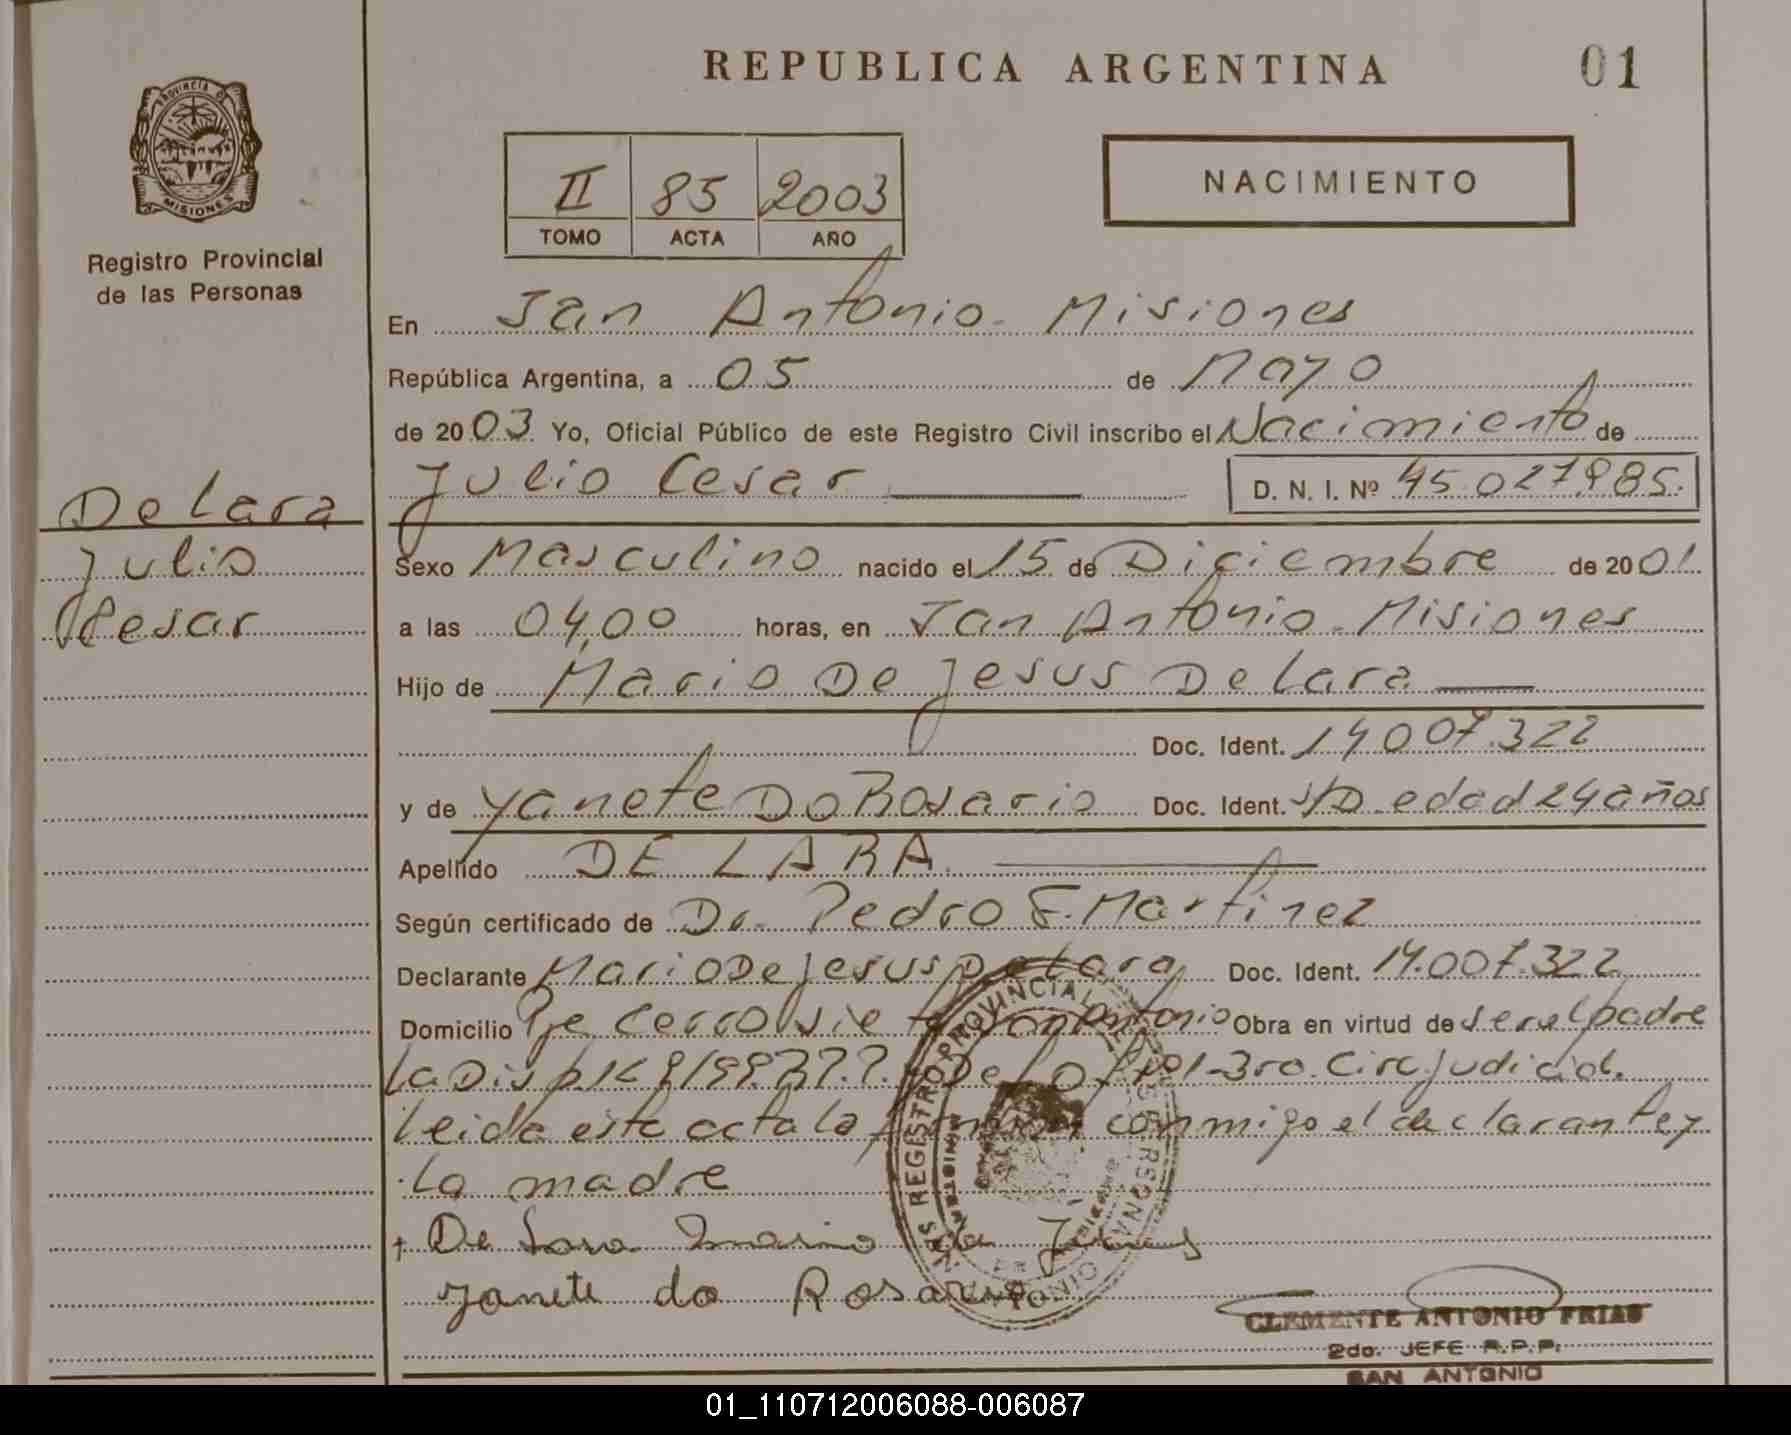 REPUBLICA ARGENTINA
01
PROVINCIA DE
MISIONES
Registro Provincial
de las Personas
II 85 2003
TOMO ACTA AÑO
NACIMIENTO
En San Antonio - Misiones
República Argentina, a 05 de Mayo
de 2003 Yo, Oficial Público de este Registro Civil inscribo el Nacimiento de
Julio Cesar D. N. I. Nº 45.027.985.
De Lara
Julio
Cesar
Sexo Masculino nacido el 15 de Diciembre de 2001
a las 04,00 horas, en San Antonio - Misiones
Hijo de Mario De Jesus De Lara
Doc. Ident. 14.007.322
y de Yanete Do Rosario Doc. Ident. S/D. edad 24 años
Apellido DE LARA
Según certificado de Dr. Pedro E. Martinez
Declarante Mario De Jesus De Lara Doc. Ident. 14.007.322
Domicilio Pje Cerro Siete San Antonio Obra en virtud de ser el padre
La Disp. De 3ro. Circ. Judicial.
Leida este acta la firman conmigo el declarante y
La madre
De Lara Mario de Jesus
Janete do Rosario
REGISTRO PROVINCIAL DE LAS PERSONAS
CLEMENTE ANTONIO FRIAS
2do. JEFE R.P.P.
SAN ANTONIO
01_110712006088-006087